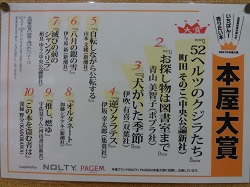 いちばん!
売りたい本
本屋大賞
大賞
1『52ヘルツのクジラたち』
町田そのこ(中央公論新社)
2『お探し物は図書室まで』
青山美智子(ポプラ社)
3『犬がいた季節』
伊吹有喜(双葉社)
4『逆ソクラテス』
伊坂幸太郎(集英社)
5『自転しながら公転する』
山本文緒(新潮社)
6『八月の銀の雪』
伊与原新(新潮社)
7『滅びの前のシャングリラ』
凪良ゆう(中央公論新社)
8『オルタネート』
加藤シゲアキ(新潮社)
9『推し、燃ゆ』
宇佐見りん(河出書房新社)
10『この本を盗む者は』
深緑野分(KADOKAWA)
NOLTY PAGEM